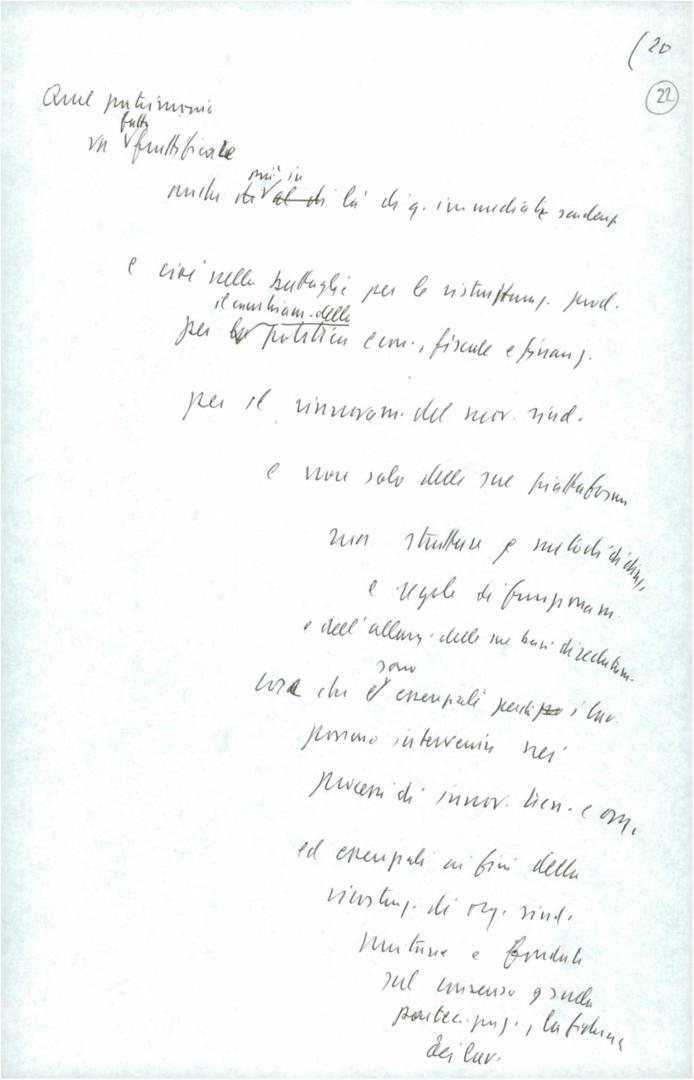 (20
22
Quel patrimonio
fatto
va fruttificare
più in
anche di al di là di q. immediate scadenz
e cioè nella battaglia per la ristrutturaz. prod.
il cambiam. della
per la politica econ., fiscale e finanz.
per il rinnovam. del mov. sind.
e non solo delle sue piattaforme
ma strutture e metodi di direz.
e regole di funzionam.
e dell'allarg. delle sue basi di reclutam.
sono
cose che è essenziali perché i lav.
possano intervenire nei
processi di innov. tecn. e org.
ed essenziali ai fini della
ricostruz. di org. sind.
unitarie e fondate
sul consenso
partecipaz., la fiducia
dei lav.